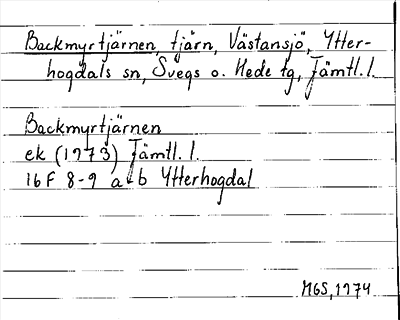 Backmyrtjärnen, tjärn, Västansjö, Ytter-
hogdals sn, Svegs o. Hede tg, Jämtl. l.
Backmyrtjärnen
ek (1973) Jämtl. l.
16 F 8-9 a-b Ytterhogdal
MGS, 1974